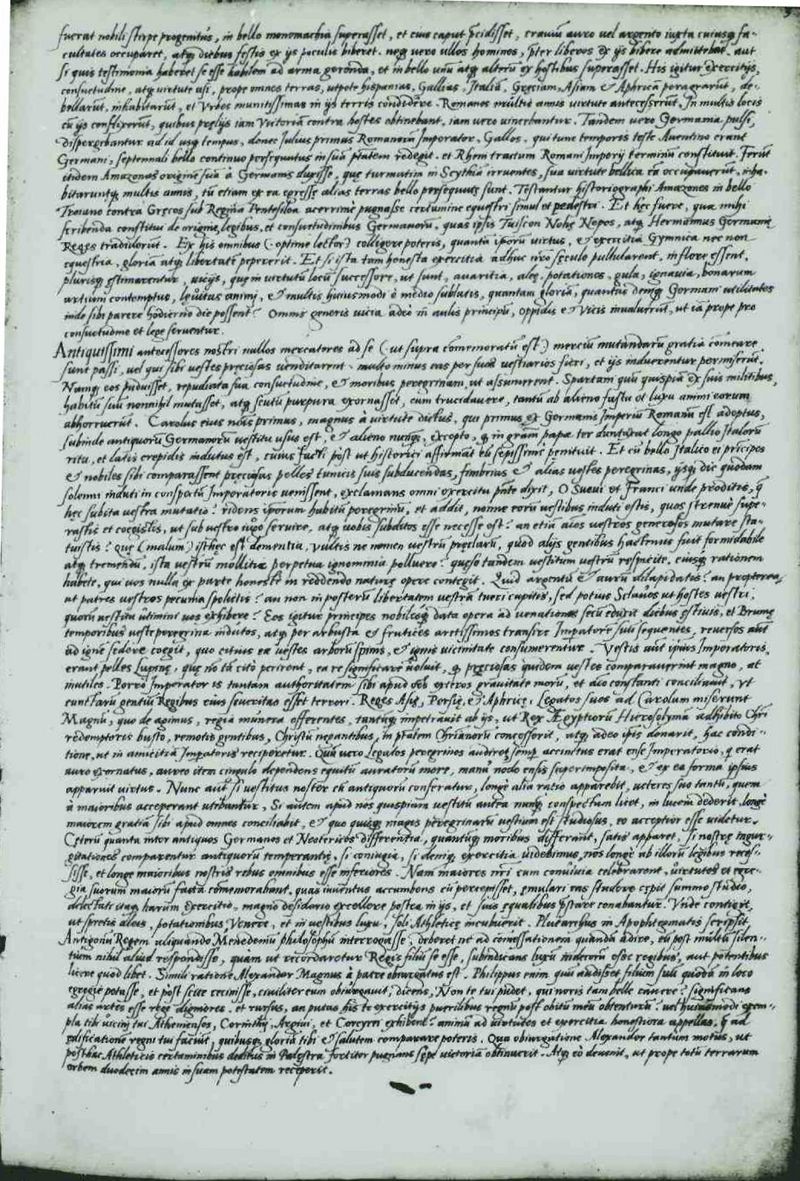 fuerat nobili stirpe progenitus, in bello monomachia superasset, et eius caput p̃cidisset, craniũ auro vel argento iuxta cuiusq; fa-
cultates occuparet, atq; diebus festis ex ijs poculis biberet. neq; vero ullos homines, p̃ter liberos ex ijs bibere admittebãt. aut
si quis testimonia haberet se esse habilem ad arma gerenda, et in bello unũ atq; alterũ ex hostibus superasset. His igitur exercitijs,
consuetudine, atq; virtute usi, prope omnes terras, utpote hispanias, Gallias, Italiã, Gręciam, Asiam & Aphricã peragrarũt, de-
bellarũt, inhabitarũt, et Urbes munitissimas in ijs terris condidere. Romanos multis annis virtute antecesserũt. In multis locis
cũ ijs conflixerũt, quibus prelijs iam victoriã contra hostes obtinebant, iam vero vincebantur. Tandem vero Germania pulsi,
dispergebantur ad id usq; tempus, donec Julius primus Romanorũ Imperator, Gallos, qui tunc temporis teste Aventino erant
Germani, septennali bello continuo persequutus in suã p̃tatem redegit. et Rhem tractum Romani Imperij terminũ constituit. Ferũt
itidem Amazonas originẽ suã à Germanis duxisse, quę turmatim in Scythiã irruentes, sua virtute bellica eã occupaverũt, inha-
bitaruntq; multis annis, tũ etiam ex ea egressę alias terras bello persequutę sunt. Testantur historiographi Amazones in bello
Troiano contra Gręcos sub Regina Pentesilea acerrimè pugnasse certamine equestri simul et pedestri. Et hęc fuere, quę mihi
scribenda constitui de origine, legibus, et consuetudinibus Germanorũ, quas ipsis Tuiscon Nohę Nepos, atq; Hermannus Germanię
Reges tradiderũt. Ex his omnibus (optime lector) colligere poteris, quanta ip̃orum virtus, & exercitia Gymnica nec non
equestria, gloriã atq; libertatẽ pepererit. Et si ista tam honesta exercitia adhuc nr̃o seculo pullularent, in flore essent,
plurisq; estimarentur, vicijs, quę in virtutũ locũ successere, ut sunt, avaritia, aleę, potationes, gula, ignavia, bonarum
artium contemptus, levitas animi, & multis huiusmodi è medio sublatis, quantam gloriã, quantas deniq; Germani utilitates
inde sibi parere hodierno die possent? Omnis generis vicia adeò in aulis principũ, oppidis & vicis invaluerũt, ut iã prope pro
consuetudine et lege serventur.
Antiquissimi antecessores nostri nullos mercatores ad se (ut supra com̃emoratũ est) merciũ mutandarũ gratia com̃eare
sunt passi, vel qui sibi vestes preciosas venditarent. multo minus eas per suos vestiarios fieri, et ijs induerentur permiserũt.
Namq; eos puduisset, repudiata sua consuetudine, & moribus peregrinum ut assumerent. Spartam cũ quispiã ex suis militibus,
habitũ suũ nonnihil mutasset, atq; scutũ purpura exornasset, eum trucidavere, tantũ ab alieno fastu et luxu animi eorum
abhorruerũt. Carolus eius nõis primus, magnus à virtute dictus, qui primus ex Germanis Imperiũ Romanũ est adeptus,
subinde antiquorũ Germanorũ vestitu usus est, & alieno nunq; excepto, q̃ in grãm papę ter duntaxat longo pallio Italorũ
ritu, et latis crepidis indutus est, cuius facti põst ut historici affirmãt eũ sepissimè penituit. Et cũ bello Italico ei p̃ncipes
& nobiles sibi comparassent preciosas pelles tunicis suis subducendas, fimbrias & alias vestes peregrinas, ijsq; die quodam
solenni induti in conspectũ Imperatoris venissent, exclamans omni exercitu p̃nte dixit, O Suevi et Franci unde proditis, q̃
hęc subita vestra mutatio? ridens ip̃orum habitũ peregrinũ, et addit, nonne eorũ vestibus induti estis, quos strenuè supe-
rastis et coegistis, ut sub vestro iugo servire, atq; vobis subditos esse necesse est? an etiã aĩos vestros generosos mutare sta-
tuistis? Quę (malum) isthęc est dementia, vultis ne nomen vestrũ pręclarũ, quod alijs gentibus hactenus fuit formidabile
atq; tremendũ, ista vestra mollitie perpetua ignominia polluere? quęso tandem vestitum vestrũ respicite, eiusq; rationem
habete, qui vos nulla ex parte honestè in reddendo naturę opere contegit. Quid argentũ & aurũ dilapidatis? an propterea
ut patres vestros pecunia spolietis? an non in posterũ libertatem vestrã tueri cupitis, sed potius Sclavos ut hostes vestri,
quorũ vestitu utimini vos exhibere? Eos igitur principes nobilesq; data opera ad venationẽ secũ eduxit diebus estivis, et Brumę
temporibus veste peregrina indutos, atq; per arbusta & frutices arctissimos transire Imp̃atorẽ suũ sequentes, reversos aũt
ad ignẽ sedere coegit, quo citius eę vestes arborũ spinis, & ignis vicinitate consumerentur. Vestis aũt ipsius Imperatoris,
erant pelles Lupinę, quę nõ tã citò perirent, ea re significare voluit, q̃ preciosas quidem vestes comparaverint magno, at
inutiles. Porrò Imperator is tantam authoritatem sibi apud oẽs exteros gravitate morũ, et aĩo constanti conciliavit, ut
cunctarũ gentiũ Regibus eius severitas esset terrori. Reges Asię, Persię, & Aphricę, Legatos suos ad Carolum miserunt
Magnũ, quo de agimus, regia munera offerentes, tantũq; impetravit ab ijs, ut Rex Ægyptiorũ Hierosolymã adhibito Chr̃i
redemptoris busto, remotis gentibus, Christũ negantibus, in p̃tatem Chr̃ianorũ concesserit, atq; adeo ipis donarit, hac condi-
tione, ut in amicitiã Imp̃atoris reciperetur. Qũu vero Legatos peregrinos audiret, semp̃ accinctus erat ense Imperatorio, q̃ erat
auro exornatus, aureo item cingulo dependens equitũ auratorũ more, manu nodo ensis superimposita, & ex ea forma ipsius
apparuit virtus. Nunc aũt si vestitus noster cũ antiquorũ conferatur, longè alia ratio apparebit, veteres suo tantũ, quem
à maioribus acceperant utebantur. Si autem apud nos quispiam vestitũ antea nunq; conspectum licet, in lucem dederit, longè
maiorem gratiã sibi apud omnes conciliabit, & quo quisq; magis peregrinarũ vestium est studiosus, eo acceptior esse videtur.
Ceterũ quanta inter antiquos Germanos et Neotericos differentia, quantũq; moribus differãnt, satis apparet. Si nostrę ingur-
gitationes comparentur antiquorũ temperantię, si coniugia, si deniq; exercitia videbimus nos longè ab illorũ legibus reces-
sisse, et longè maioribus nostris rebus omnibus esse inferiores. Nam maiores nr̃i cum convivia celebrarent, virtutes et egre-
gia suorum maiorũ facta com̃emorabant, quas iuventus accumbens cũ percepisset, emulari eas studere cępit summo studio,
delectatuitaq; harum exercitio, magno desiderio excellere postea in ijs, et suis equalibus p̃stare conabantur. Unde contigit,
ut spretis aleis, potationibus, Venere, et in vestibus luxu, soli Athleticę incubuerit. Plutarchus in Apophtegmatis scripsit,
Antigonũ Regem aliquando Menedemũ philosophũ interrogasse, deberet nè ad comessationem quandã adire, eũ post multũ silen-
tium nihil aliud respondisse, quam ut recordaretur Regis filiũ se esse, subindicans luxũ indecorũ esse regibus, aut potentibus
licere quod libet. Simili ratione Alexander Magnus à patre obiurgatus est. Philippus enim quũ audisset filium suũ quodã in loco
egregiè potasse, et post scitè cecinisse, civiliter eum obiurgavit, dicens, Non te tui pudet, qui noris tam bellè canere? significans
alias artes esse rege digniores. et rursus, an putas his te exercitijs puerilibus regnũ post obitũ meũ obtenturũ? vel huiusmodi exem-
pla tibi vicini tui Athenienses, Corinthij, Argivi, et Corcyrei exhibent? animũ ad virtutes et exercitia honestiora appellas, q̃ ad
edificationẽ regni tui faciũt, quibusq; gloriã tibi & salutem comparare poteris. Qua obiurgatione Alexander tantum motus, ut
posthac Athleticis certaminibus deditus in Palestra fortiter pugnans sępe victoriã obtinuerit. Atq; eò devenit, ut prope totũ terrarum
orbem duodecim annis in suam potestatem receperit.